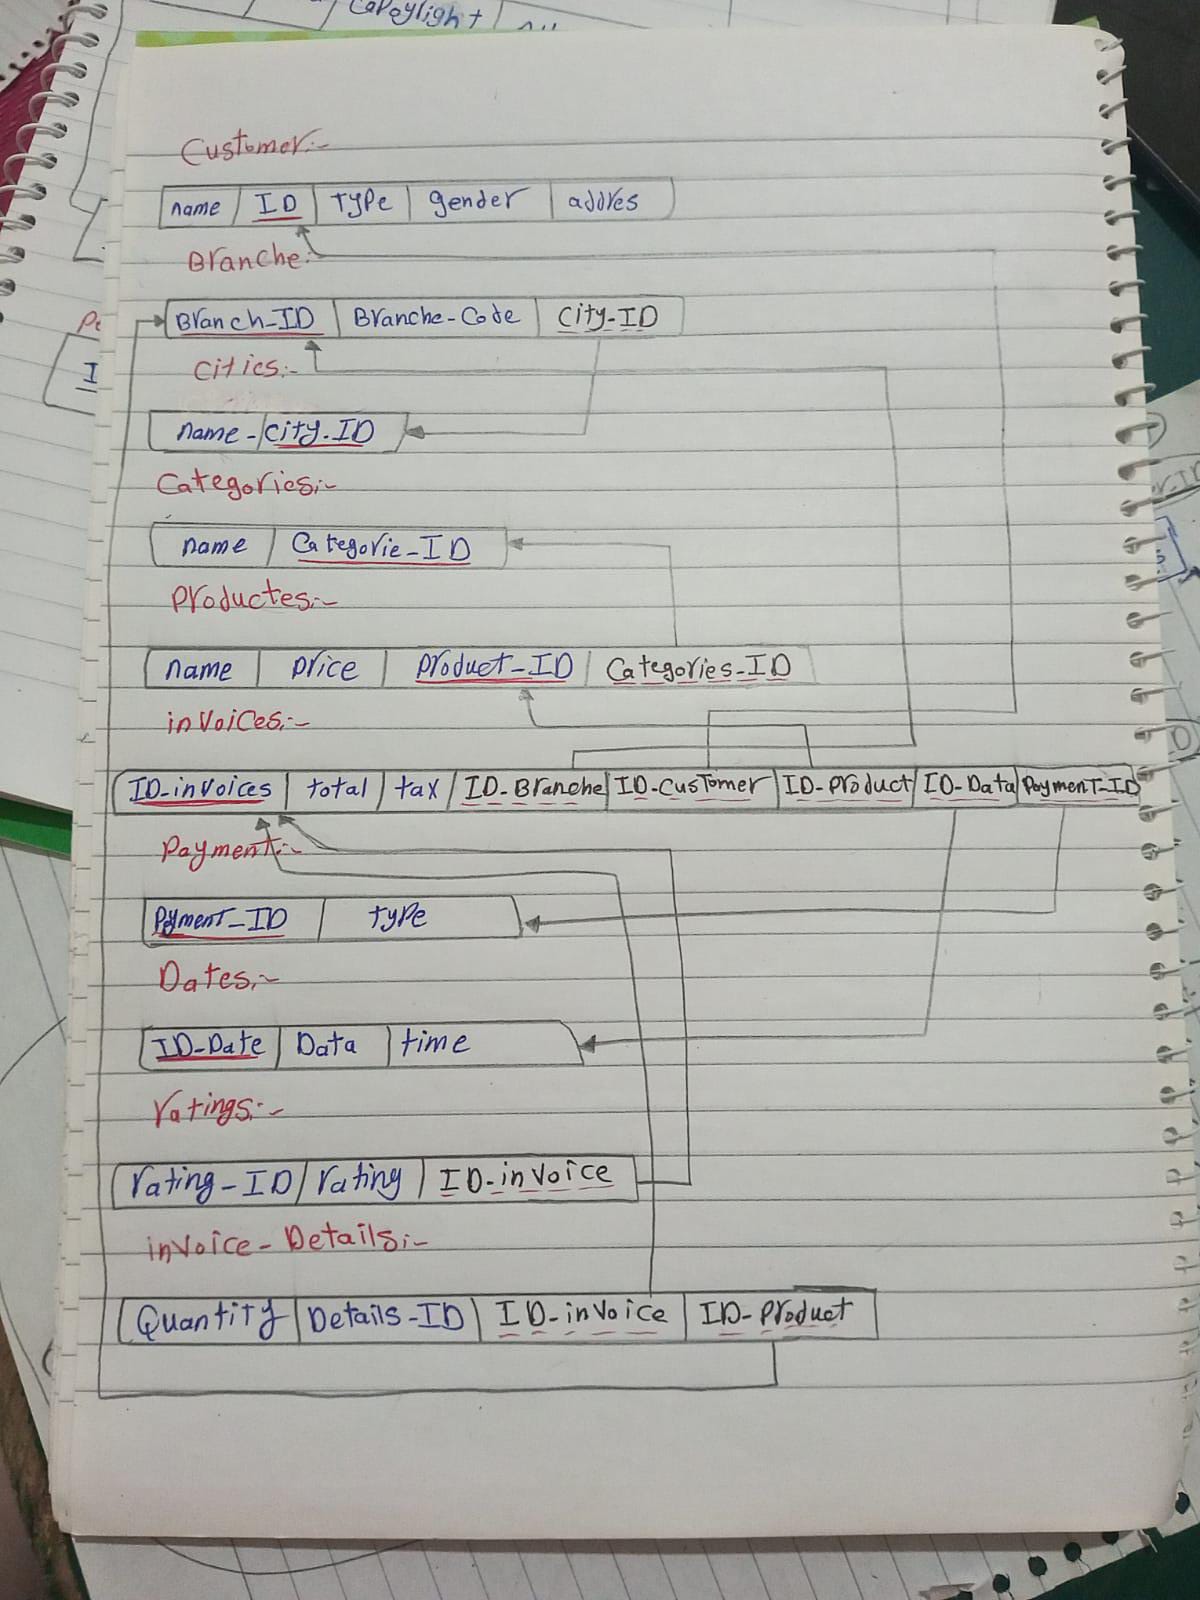 CaPaylight
Customer:-
name ID TYPe gender addres
Branche:-
Branch_ID Branche-Code City-ID
Cities:-
name - City-ID
Categories:-
name Categorie_ID
Productes:-
name Price Product_ID Categories_ID
invoices:-
ID-invoices total tax ID-Branche ID-Customer ID-Product ID-Data Payment-ID
Payment:-
Pyment_ID type
Dates:-
ID-Date Data time
ratings:-
rating-ID rating ID-invoice
invoice-Details:-
Quantity Details-ID ID-invoice ID-Product